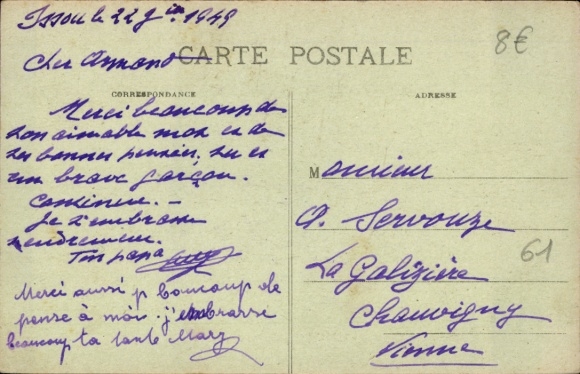 Issou le 22 Jin 1949
8€
Cher Armand
CARTE POSTALE
CORRESPONDANCE
ADRESSE
Merci beaucoup de
ton aimable mot et de
tes bonnes pensées, tu es
un brave garçon.
Continue. —
Je t'embrasse
tendrement.
Ton papa
Merci aussi p beaucoup de
pense à moi. j'embrasse
beaucoup ta tante Mary
Monsieur
A. Servouze
La Galizière
Chauvigny
Vienne
61